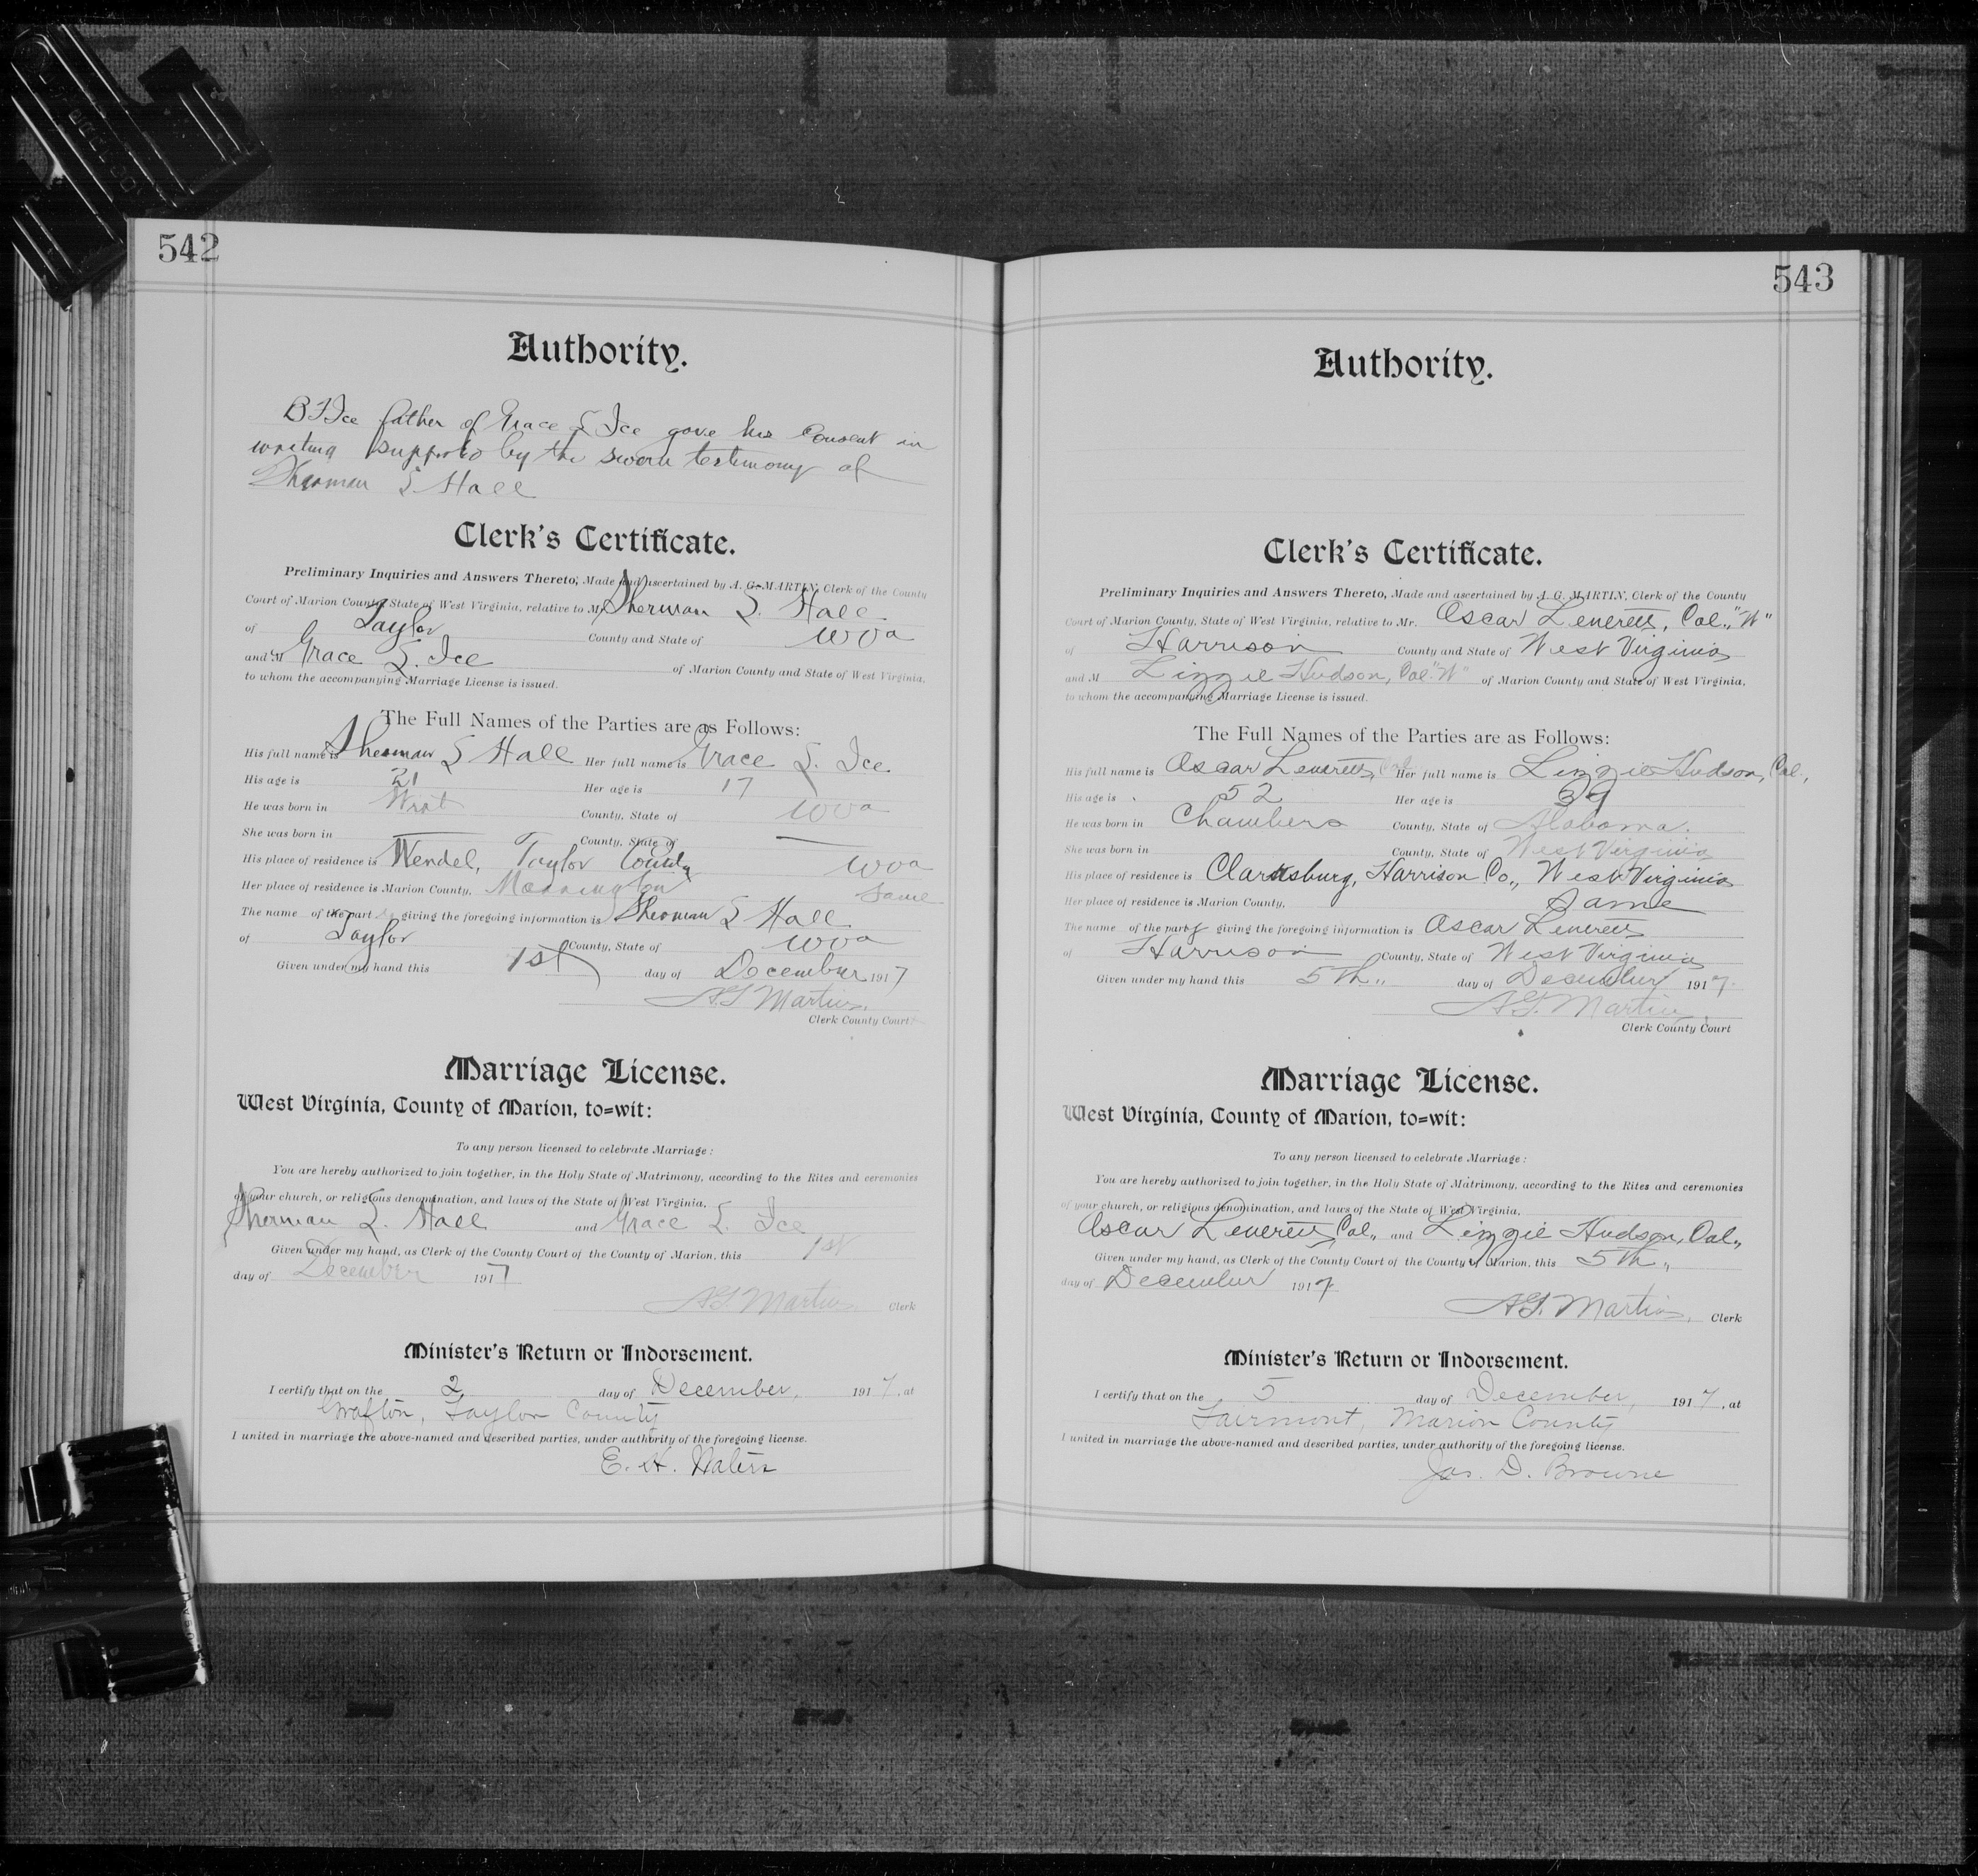 542
Authority.
B F Ice father of Grace L Ice gave his Consent in
writing supported by the sworn testimony of
Sherman L Hall
Clerk's Certificate.
Preliminary Inquiries and Answers Thereto, Made and ascertained by A. G. MARTIN, Clerk of the County
Court of Marion County, State of West Virginia, relative to Mr Sherman L. Hall
of Taylor County and State of WVa
and M Grace L. Ice of Marion County and State of West Virginia,
to whom the accompanying Marriage License is issued.
The Full Names of the Parties are as Follows:
His full name is Sherman L Hall Her full name is Grace L. Ice
His age is 21 Her age is 17
He was born in County, State of WVa
She was born in County, State of
His place of residence is Wendel, Taylor County WVa
Her place of residence is Marion County, Mannington Same
The name of the part giving the foregoing information is Sherman L Hall
of Taylor County, State of WVa
Given under my hand this 1st day of December 1917
A G Martin
Clerk County Court
Marriage License.
West Virginia, County of Marion, to=wit:
To any person licensed to celebrate Marriage:
You are hereby authorized to join together, in the Holy State of Matrimony, according to the Rites and ceremonies
of your church, or religious denomination, and laws of the State of West Virginia,
Sherman L. Hall and Grace L Ice
Given under my hand, as Clerk of the County Court of the County of Marion, this 1st
day of December 1917
A G Martin Clerk
Minister's Return or Indorsement.
I certify that on the 2 day of December, 1917, at
Grafton, Taylor County
I united in marriage the above-named and described parties, under authority of the foregoing license.
E. H. Waters
543
Authority.
Clerk's Certificate.
Preliminary Inquiries and Answers Thereto, Made and ascertained by A. G. MARTIN, Clerk of the County
Court of Marion County, State of West Virginia, relative to Mr. Oscar Leverett, Col., "W"
of Harrison County and State of West Virginia
and M Lizzie Hudson, Col. "W" of Marion County and State of West Virginia,
to whom the accompanying Marriage License is issued.
The Full Names of the Parties are as Follows:
His full name is Oscar Leverett, Col Her full name is Lizzie Hudson, Col.,
His age is 52 Her age is 39
He was born in Chambers County, State of Alabama.
She was born in County, State of West Virginia
His place of residence is Clarksburg, Harrison Co., West Virginia
Her place of residence is Marion County, Same
The name of the party giving the foregoing information is Oscar Leverett
of Harrison County, State of West Virginia
Given under my hand this 5th., day of December 1917.
A. G. Martin,
Clerk County Court
Marriage License.
West Virginia, County of Marion, to=wit:
To any person licensed to celebrate Marriage:
You are hereby authorized to join together, in the Holy State of Matrimony, according to the Rites and ceremonies
of your church, or religious denomination, and laws of the State of West Virginia,
Oscar Leverett, Col., and Lizzie Hudson, Col.,
Given under my hand, as Clerk of the County Court of the County of Marion, this 5th.,
day of December 1917
A. G. Martin, Clerk
Minister's Return or Indorsement.
I certify that on the 5 day of December, 1917, at
Fairmont, Marion County
I united in marriage the above-named and described parties, under authority of the foregoing license.
Jas. D. Browne